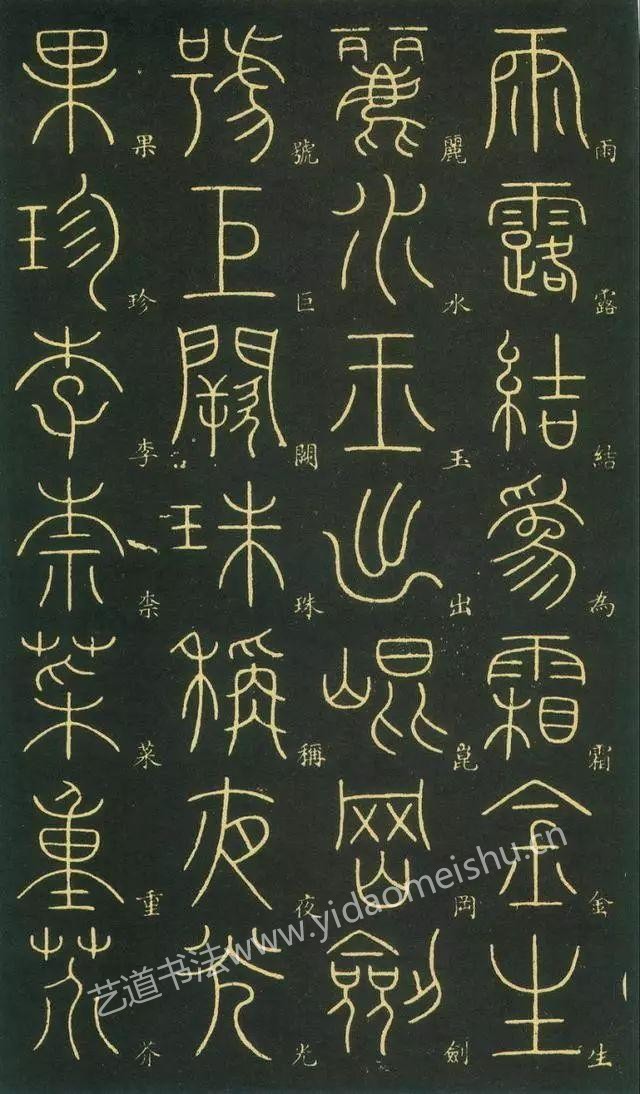 雨露結為霜金生
雨露結為霜金生
麗水玉出崑岡劍
麗水玉出崑岡劍
號巨闕珠稱夜光
號巨闕珠稱夜光
果珍李柰菜重芥
果珍李柰菜重芥
艺道书法www.yidaomeishu.cn